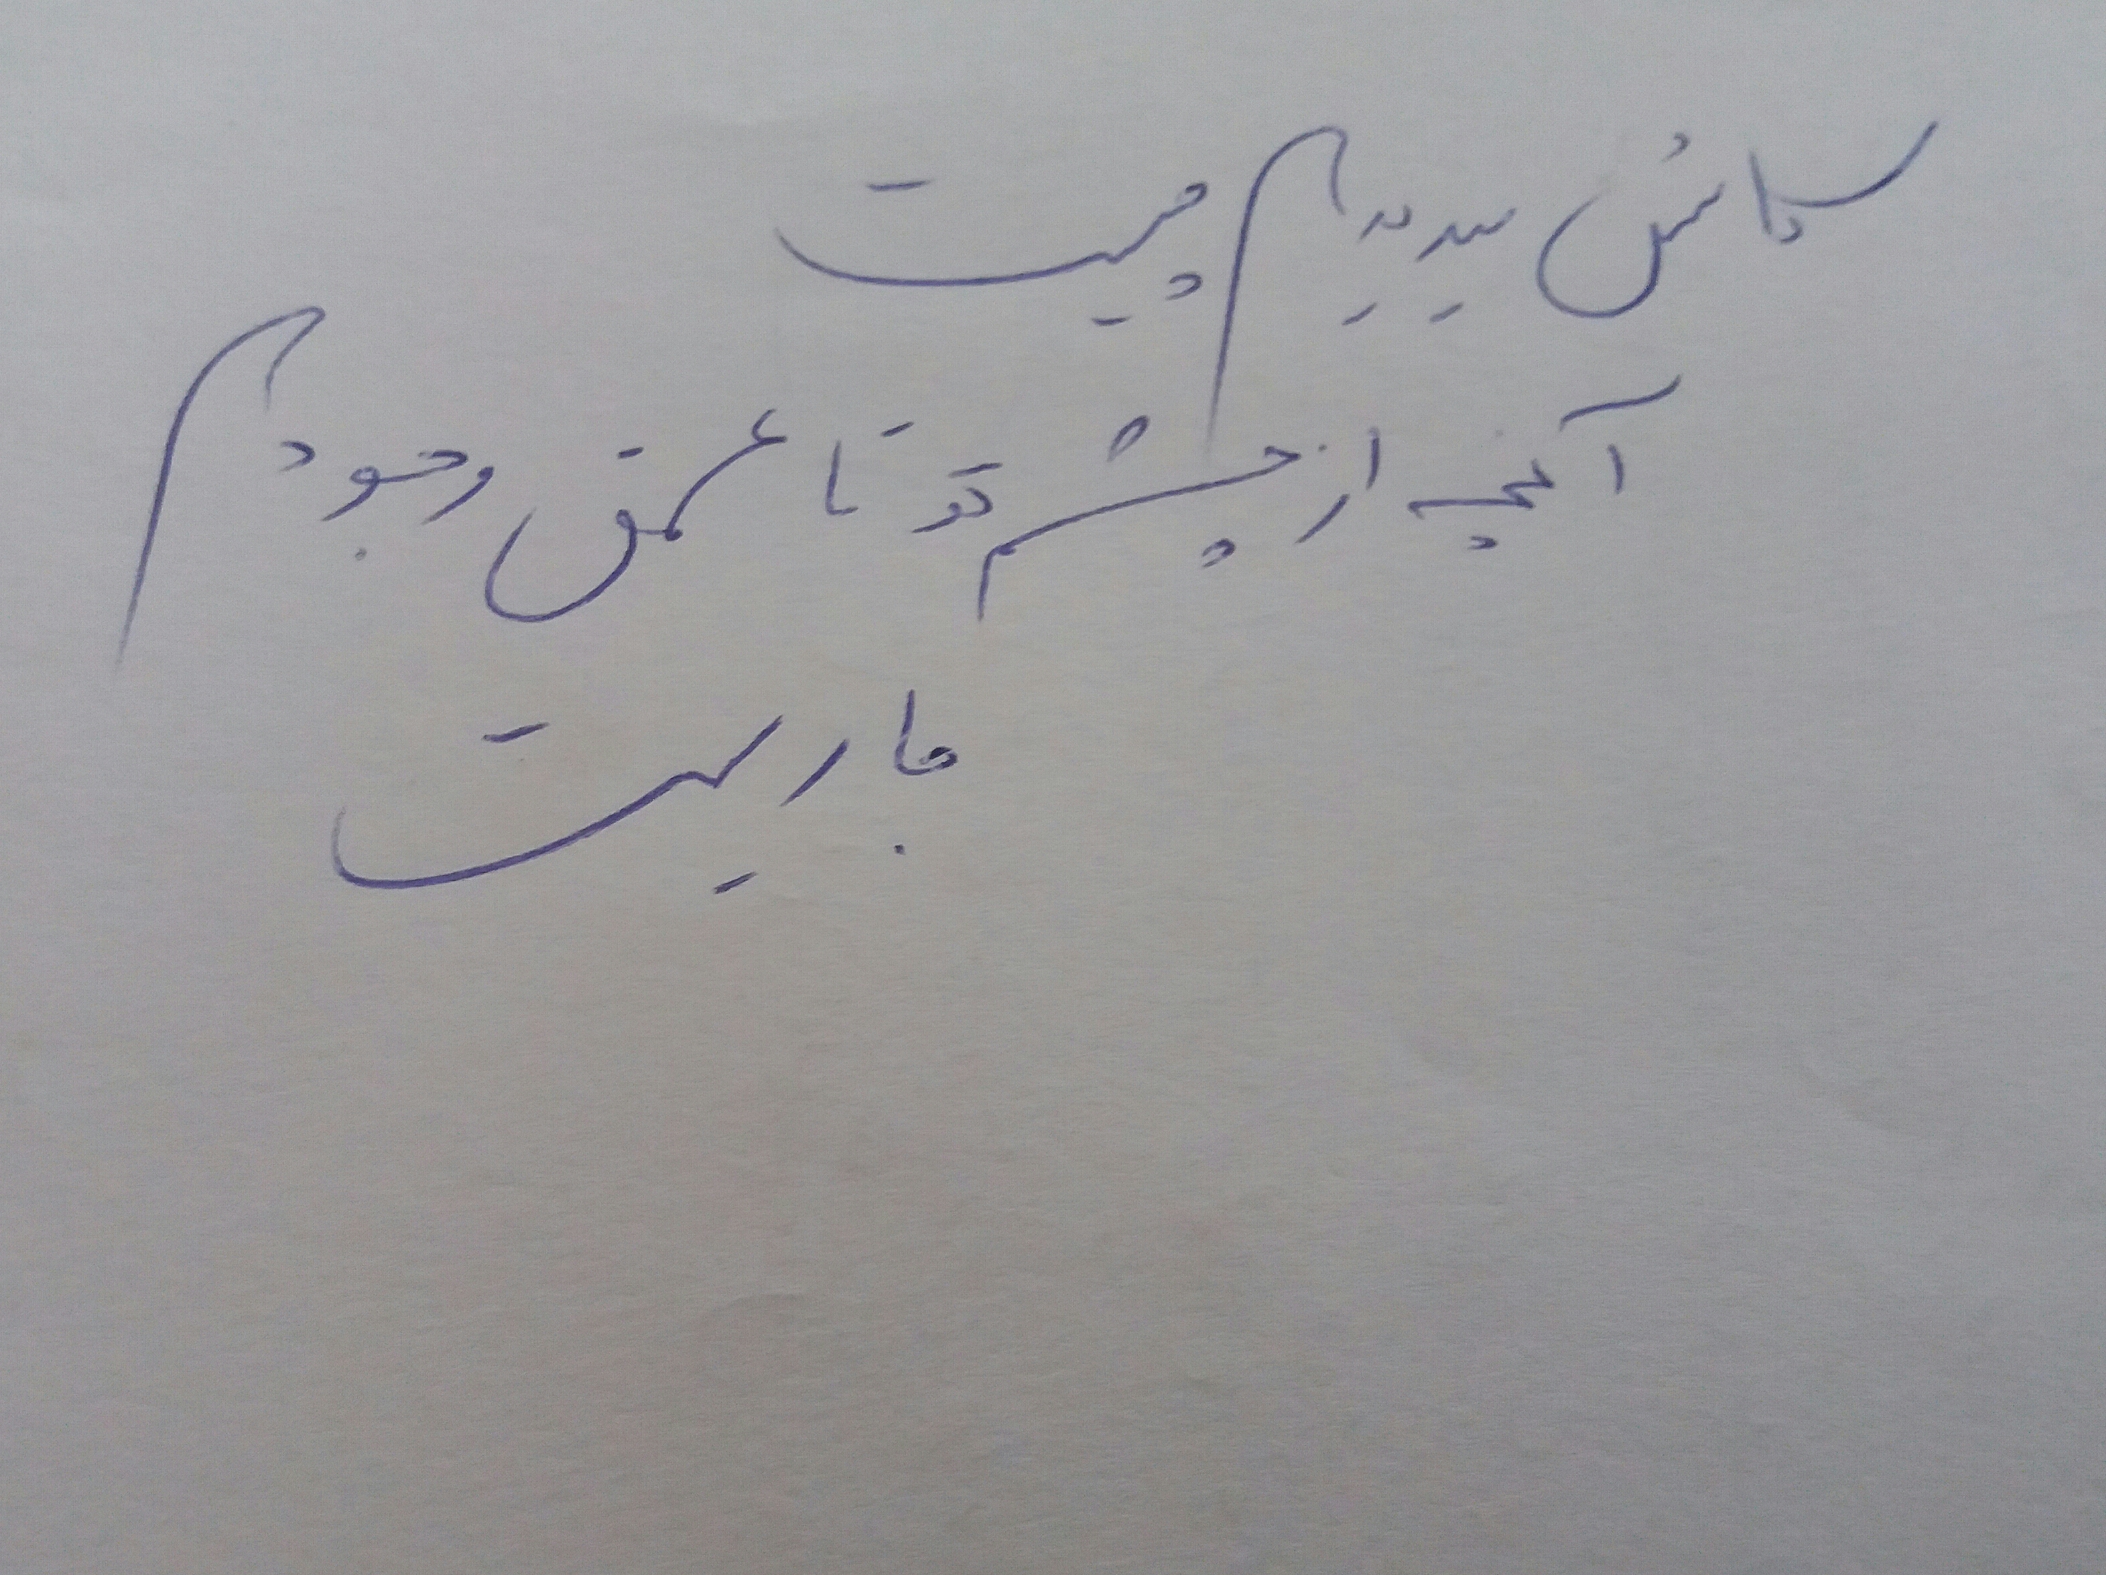 کاش می‌دیدم چیست
آنچه از چشم تو تا عمق وجودم
جاریست